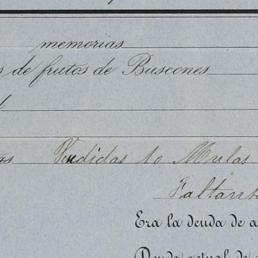 memorias
de frutos de Buscones
Vendidas 10 Mulas
Faltan
Era la deuda de a
Deuda actual de